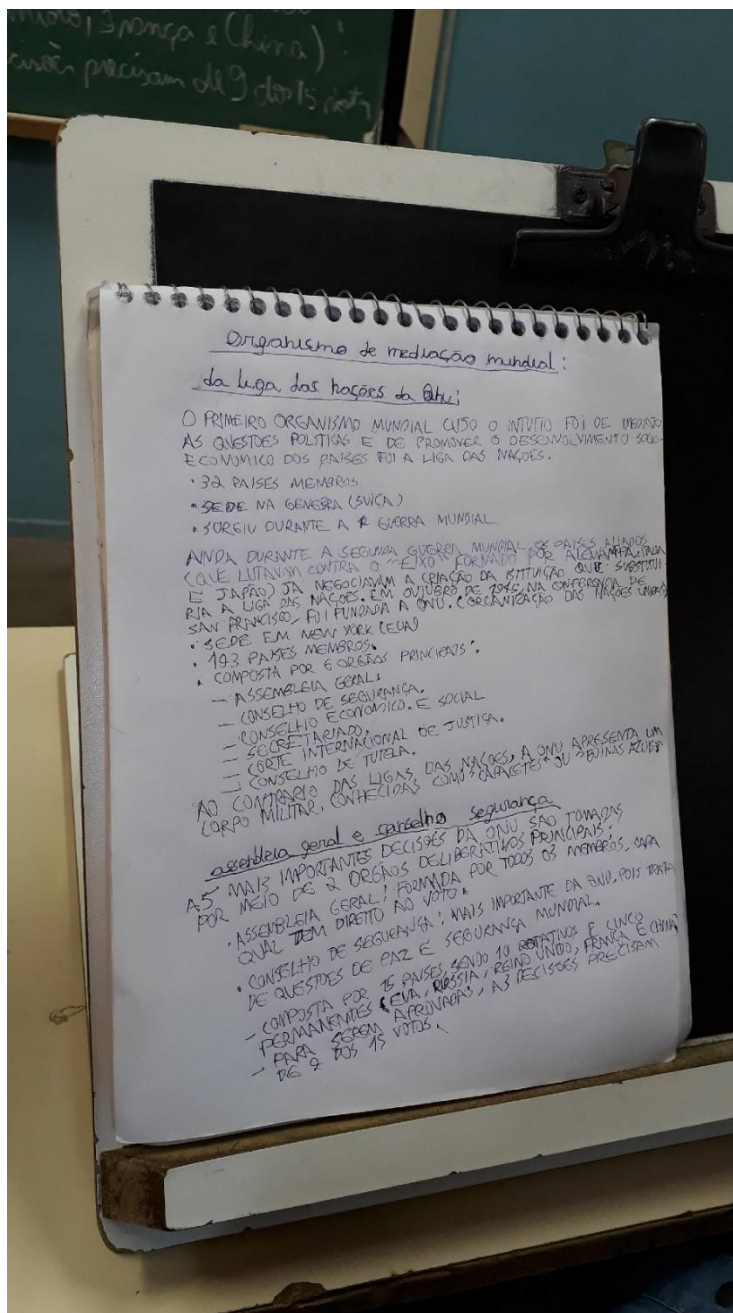 França e China)!
precisam de 9 dos 15 votos
Organismo de mediação mundial:
da liga das nações da Onu:
O PRIMEIRO ORGANISMO MUNDIAL CUJO O INTUITO FOI DE MEDIAR
AS QUESTÕES POLITICAS E DE PROMOVER O DESENVOLVIMENTO SOCIO-
ECONOMICO DOS PAÍSES FOI A LIGA DAS NAÇÕES.
• 32 PAISES MEMBROS
• SEDE NA GENEBRA (SUIÇA)
• SURGIU DURANTE A GUERRA MUNDIAL
AINDA DURANTE A SEGUNDA GUERRA MUNDIAL, OS PAÍSES ALIADOS
(QUE LUTAVAM CONTRA O "EIXO" FORMADO POR ALEMANHA, ITALIA
E JAPÃO) JA NEGOCIAVAM A CRIAÇÃO DA ISTITUIÇÃO QUE SUBSTITUI-
RIA A LIGA DAS NAÇÕES. EM OUTUBRO DE 1945, NA CONFERENCIA DE
SAN FRANCISCO, FOI FUNDADA A ONU. (ORGANIZAÇÃO DAS NAÇÕES UNIDAS)
• SEDE EM NEW YORK (EUA)
• 193 PAISES MEMBROS.
• COMPOSTA POR 6 ORGÃOS PRINCIPAIS:
– ASSEMBLEIA GERAL.
– CONSELHO DE SEGURANÇA.
– CONSELHO ECONOMICO. E SOCIAL
– SECRETARIADO.
– CORTE INTERNACIONAL DE JUSTIÇA.
– CONSELHO DE TUTELA.
AO CONTRARIO DAS LIGAS DAS NAÇÕES, A ONU APRESENTA UM
CORPO MILITAR, CONHECIDAS COMO "CAPACETES" OU "BOINAS AZUIS"
assembleia geral e conselho segurança
AS MAIS IMPORTANTES DECISÕES DA ONU SÃO TOMADAS
POR MEIO DE 2 ORGÃOS DELIBERATIVOS PRINCIPAIS:
• ASSEMBLEIA GERAL: FORMADA POR TODOS OS MEMBROS, CADA
QUAL TEM DIREITO AO VOTO.
• CONSELHO DE SEGURANÇA: MAIS IMPORTANTE DA ONU, POIS TRATA
DE QUESTÕES DE PAZ E SEGURANÇA MUNDIAL.
– COMPOSTA POR 15 PAISES, SENDO 10 ROTATIVOS E CINCO
PERMANENTES (EUA, RUSSIA, REINO UNIDO, FRANÇA E CHINA)
– PARA SEREM APROVADAS, AS DECISÕES PRECISAM
DE 9 DOS 15 VOTOS.